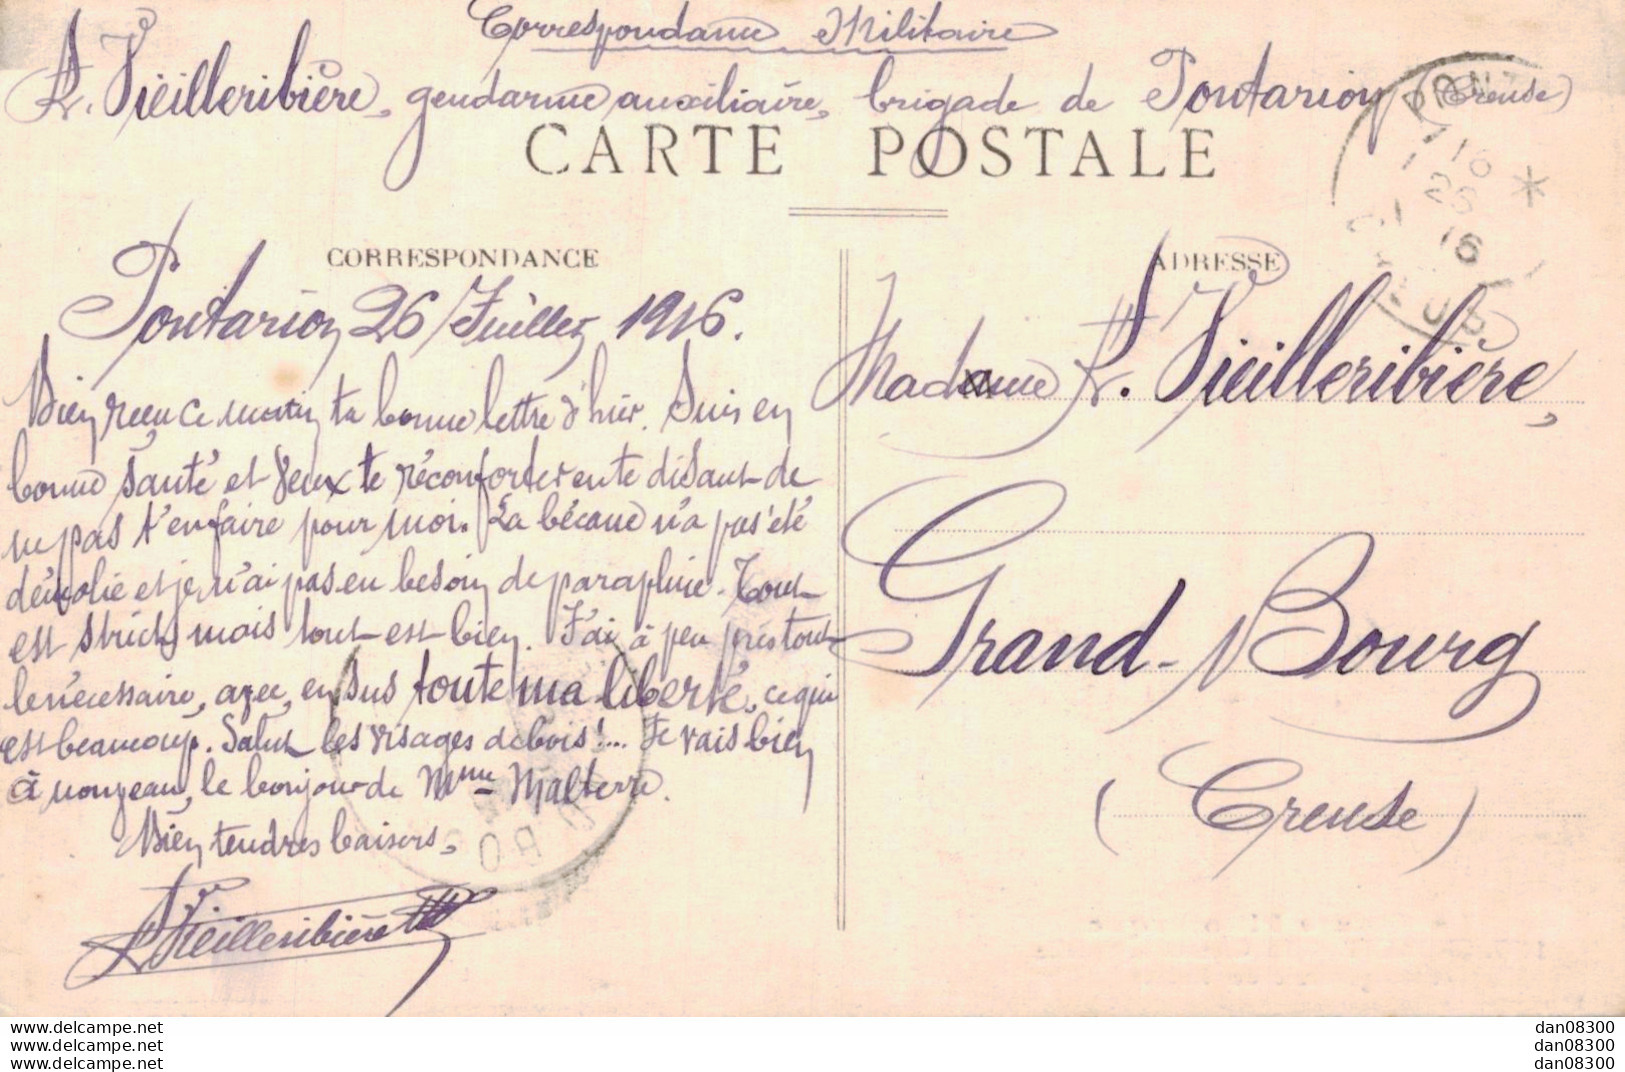 Correspondance Militaire
A. Vieilleribière, gendarme auxiliaire, brigade de Pontarion (Creuse)
CARTE POSTALE
CORRESPONDANCE
Pontarion 26 Juillet 1916.
Bien reçu ce matin ta bonne lettre d'hier. Suis en
bonne santé et veux te réconforter en te disant de
ne pas t'en faire pour moi. La bécane n'a pas été
démolie et je n'ai pas eu besoin de parapluie. Tout
est strict, mais tout est bien. J'ai à peu près tout
le nécessaire, avec, en sus toute ma liberté, ce qui
est beaucoup. Salut les visages de bois!... Je vais bien
à nouveau, le bonjour de Mme Malterre.
Bien tendres baisers.
A. Vieilleribière
ADRESSE
Madame A. Vieilleribière,
Grand-Bourg
(Creuse)
PONT
26
16
www.delcampe.net
www.delcampe.net
www.delcampe.net
dan08300
dan08300
dan08300